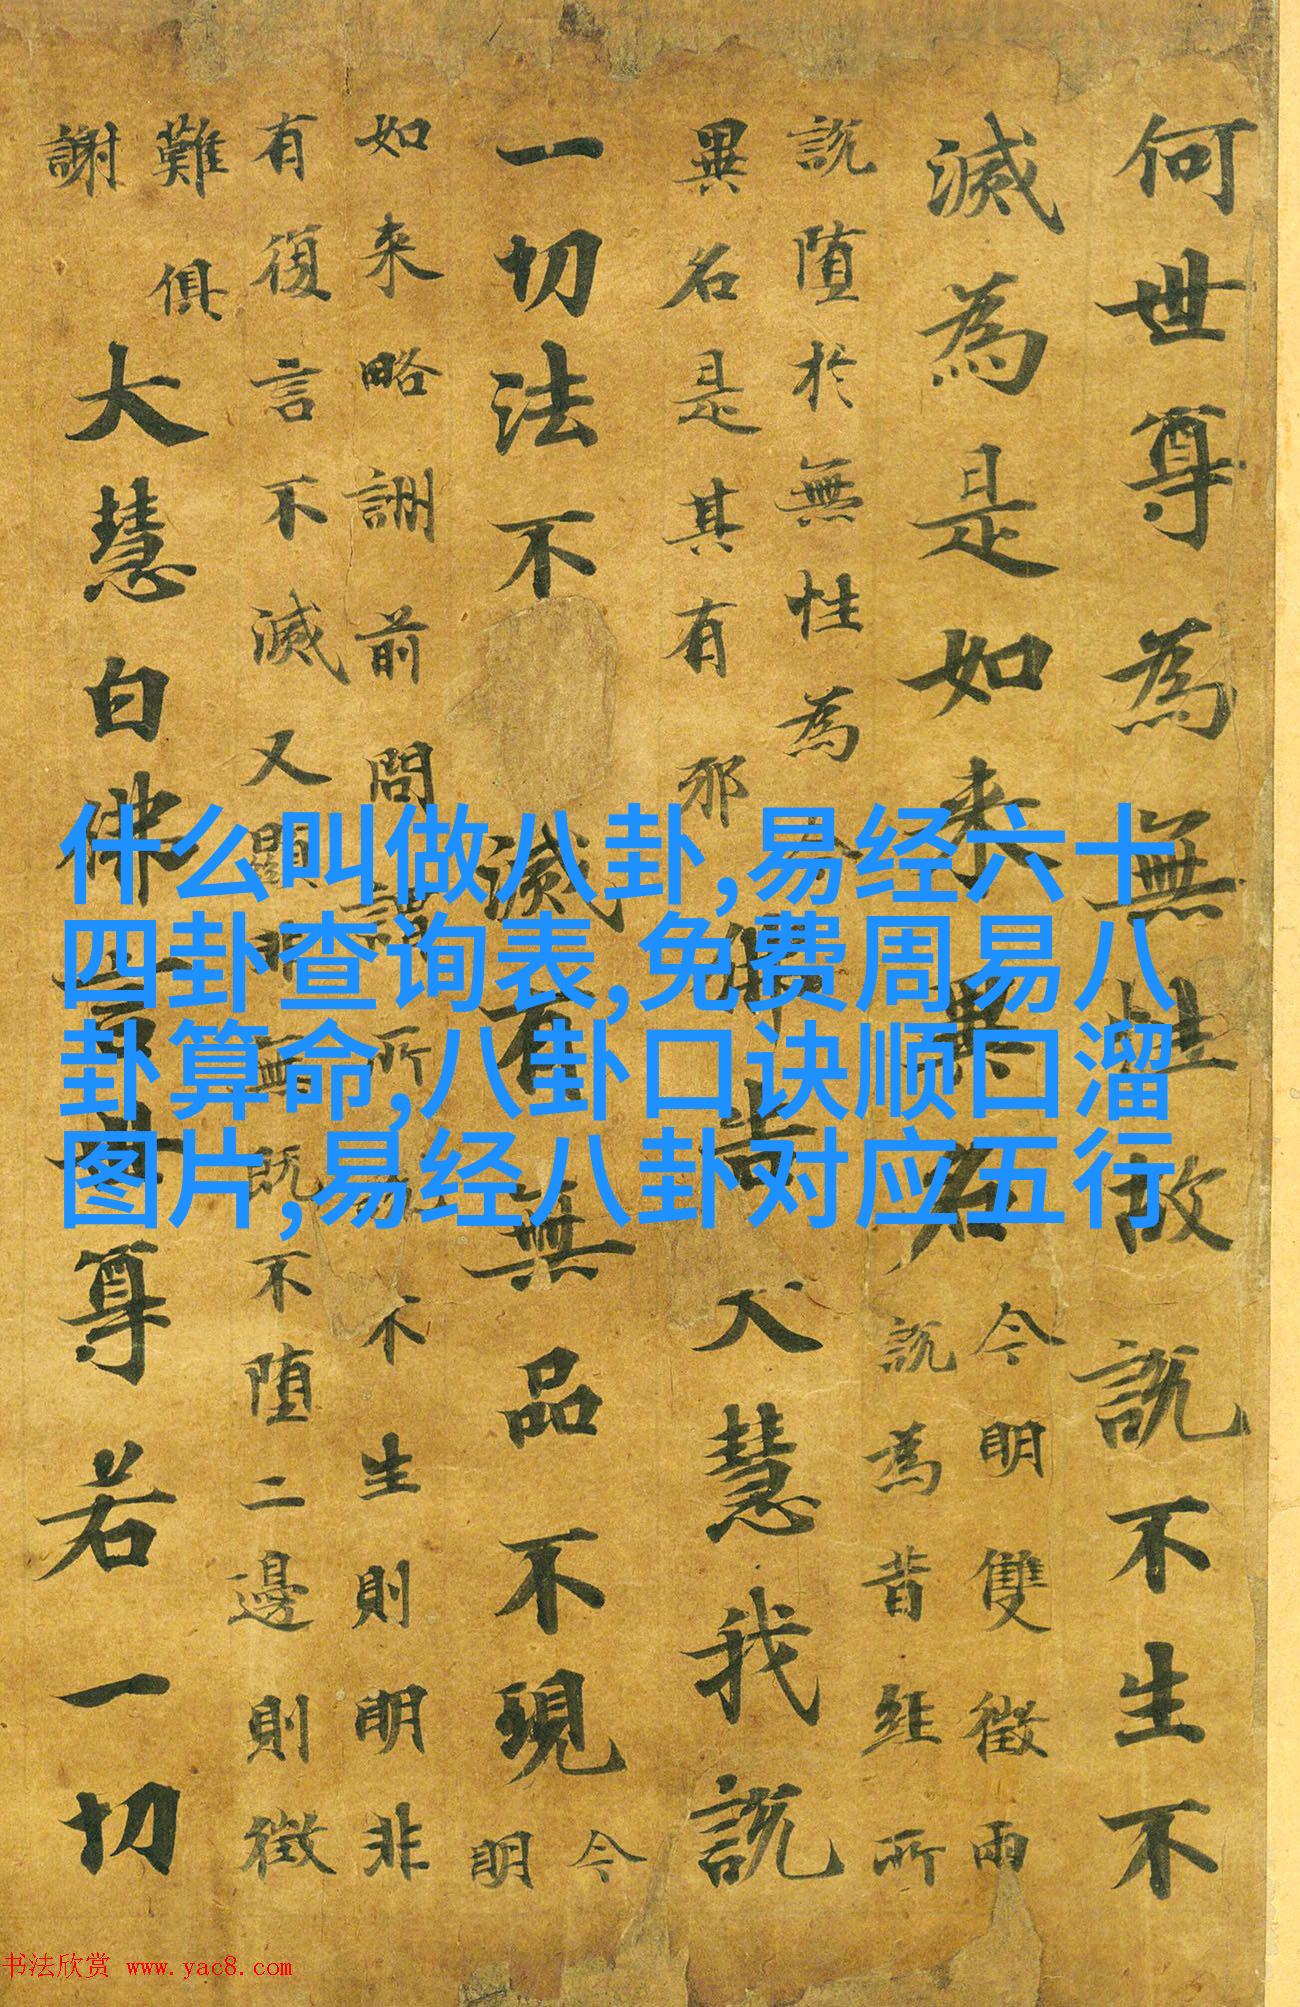 何世尊為無性故說不生不
滅為是如来異名
今明雙徵雨
說為昔經所
說堕於無性為
異名是其有邪
佛告大慧我說
一切法不滅有無品不現
今
明
如来略詶前問
所
不生則明非
有復言不滅又顯明無既不堕二邊則徵
難俱
謝
大慧白佛言世尊若一切
什么叫做八卦,易经六十
四卦查询表,免费周易八
卦算命,八卦口诀顺口溜
图片,易经八卦对应五行
书法欣赏 www.yac8.com